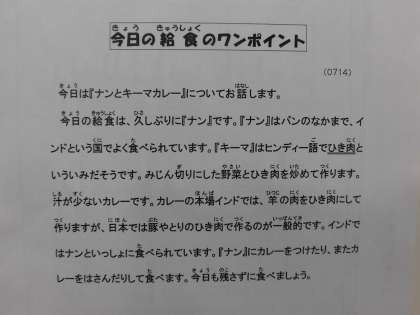 今日の給食のワンポイント
(0714)
今日は『ナンとキーマカレー』についてお話します。
今日の給食は、久しぶりに『ナン』です。『ナン』はパンのなかまで、イ
ンドという国でよく食べられています。『キーマ』はヒンディー語でひき肉と
いういみだそうです。みじん切りにした野菜とひき肉を炒めて作ります。
汁が少ないカレーです。カレーの本場インドでは、羊の肉をひき肉にして
作りますが、日本では豚やとりのひき肉で作るのが一般的です。インドで
はナンといっしょに食べられています。『ナン』にカレーをつけたり、またカ
レーをはさんだりして食べます。今日も残さずに食べましょう。